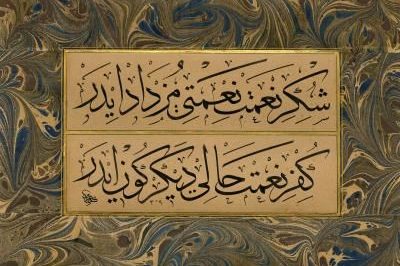 شكر نعمت نعمتى مزداد ايدر
كفر نعمت حالى ديگرگون ايدر